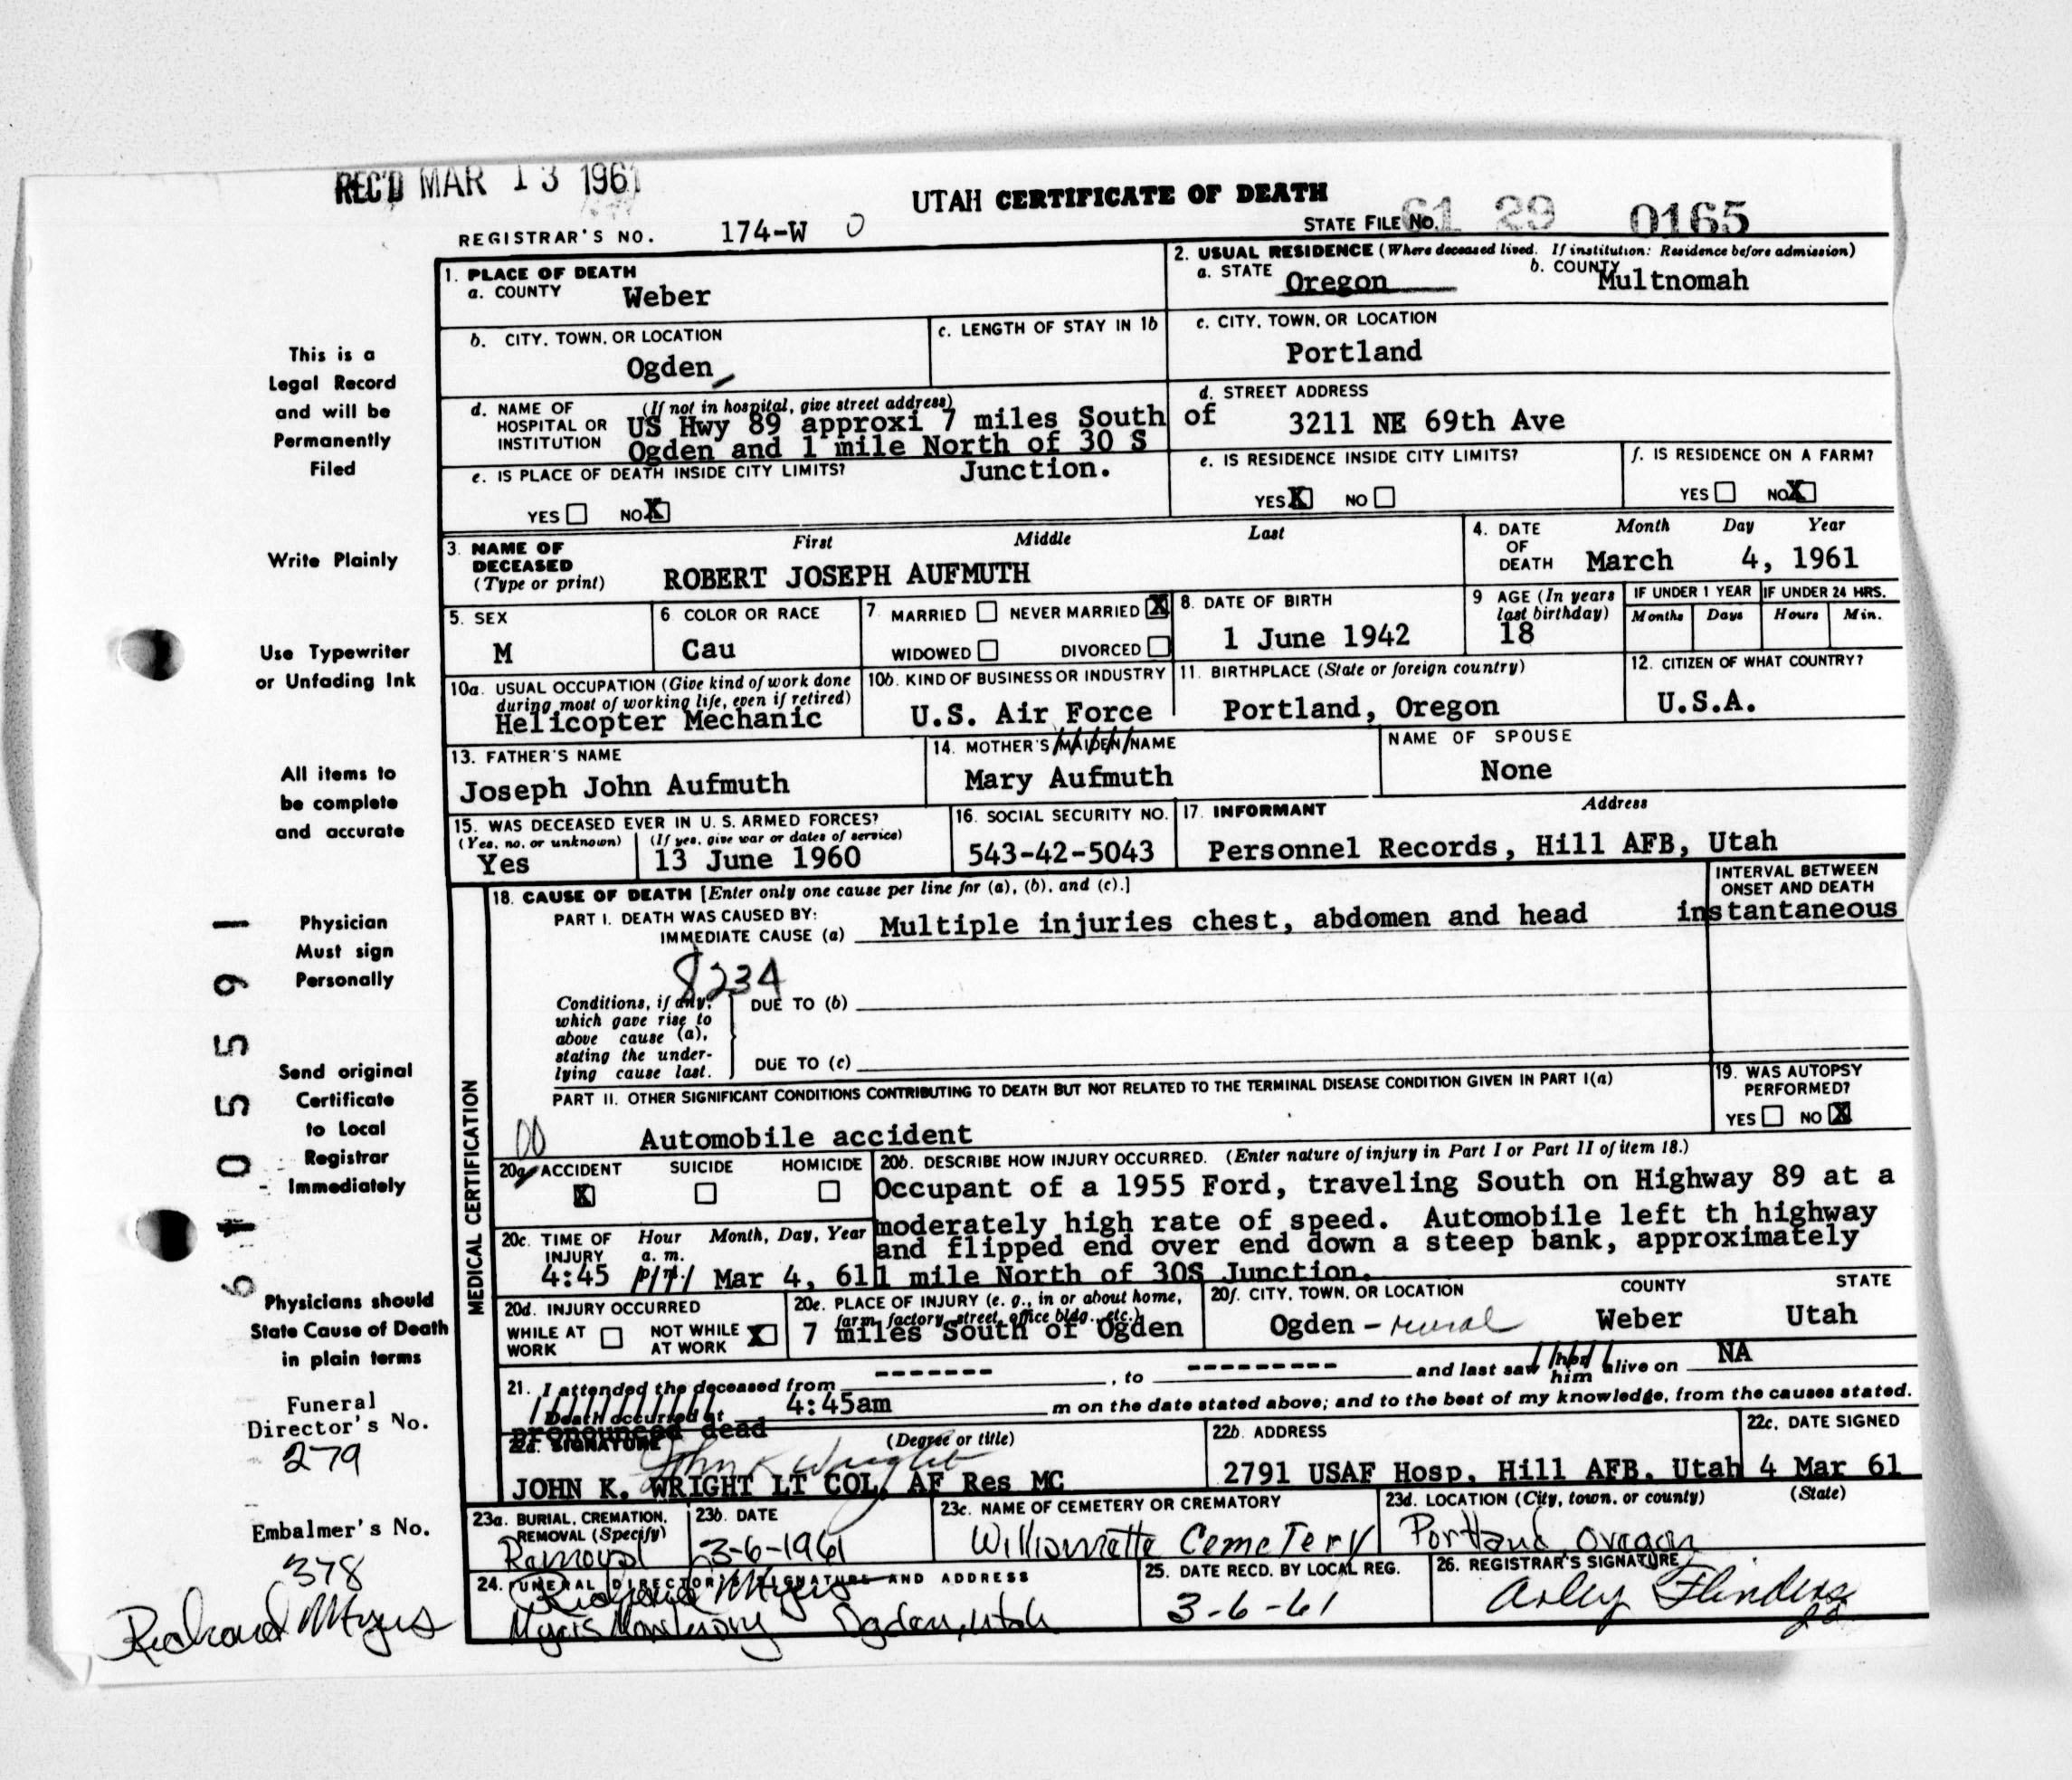 REC'D MAR 13 1961
UTAH CERTIFICATE OF DEATH
REGISTRAR'S NO. 174-W 0
STATE FILE NO. 61 29 0165
1. PLACE OF DEATH
a. COUNTY Weber
2. USUAL RESIDENCE (Where deceased lived. If institution: Residence before admission)
a. STATE Oregon b. COUNTY Multnomah
b. CITY, TOWN, OR LOCATION
Ogden
c. LENGTH OF STAY IN 1b
c. CITY, TOWN, OR LOCATION
Portland
d. NAME OF HOSPITAL OR INSTITUTION (If not in hospital, give street address)
US Hwy 89 approxi 7 miles South of
Ogden and 1 mile North of 30 S
Junction.
d. STREET ADDRESS
3211 NE 69th Ave
e. IS PLACE OF DEATH INSIDE CITY LIMITS?
YES ☐ NO X
e. IS RESIDENCE INSIDE CITY LIMITS?
YES X NO ☐
f. IS RESIDENCE ON A FARM?
YES ☐ NO X
3. NAME OF DECEASED (Type or print) First Middle Last
ROBERT JOSEPH AUFMUTH
4. DATE OF DEATH Month Day Year
March 4, 1961
5. SEX
M
6 COLOR OR RACE
Cau
7. MARRIED ☐ NEVER MARRIED X
WIDOWED ☐ DIVORCED ☐
8. DATE OF BIRTH
1 June 1942
9 AGE (In years last birthday)
18
IF UNDER 1 YEAR Months Days
IF UNDER 24 HRS. Hours Min.
10a. USUAL OCCUPATION (Give kind of work done during most of working life, even if retired)
Helicopter Mechanic
10b. KIND OF BUSINESS OR INDUSTRY
U.S. Air Force
11. BIRTHPLACE (State or foreign country)
Portland, Oregon
12. CITIZEN OF WHAT COUNTRY?
U.S.A.
13. FATHER'S NAME
Joseph John Aufmuth
14. MOTHER'S MAIDEN NAME
Mary Aufmuth
NAME OF SPOUSE
None
15. WAS DECEASED EVER IN U. S. ARMED FORCES?
(Yes, no, or unknown) (If yes, give war or dates of service)
Yes 13 June 1960
16. SOCIAL SECURITY NO.
543-42-5043
17. INFORMANT Address
Personnel Records, Hill AFB, Utah
MEDICAL CERTIFICATION
18. CAUSE OF DEATH [Enter only one cause per line for (a), (b), and (c).]
INTERVAL BETWEEN ONSET AND DEATH
PART I. DEATH WAS CAUSED BY:
IMMEDIATE CAUSE (a) Multiple injuries chest, abdomen and head instantaneous
8234
Conditions, if any, which gave rise to above cause (a), stating the underlying cause last.
DUE TO (b)
DUE TO (c)
PART II. OTHER SIGNIFICANT CONDITIONS CONTRIBUTING TO DEATH BUT NOT RELATED TO THE TERMINAL DISEASE CONDITION GIVEN IN PART I(a)
00 Automobile accident
19. WAS AUTOPSY PERFORMED?
YES ☐ NO X
20a. ACCIDENT X SUICIDE ☐ HOMICIDE ☐
20b. DESCRIBE HOW INJURY OCCURRED. (Enter nature of injury in Part I or Part II of item 18.)
Occupant of a 1955 Ford, traveling South on Highway 89 at a
moderately high rate of speed. Automobile left th highway
and flipped end over end down a steep bank, approximately
1 mile North of 30S Junction.
20c. TIME OF INJURY Hour a. m. p. m. Month, Day, Year
4:45 Mar 4, 61
20d. INJURY OCCURRED
WHILE AT WORK ☐ NOT WHILE AT WORK X
20e. PLACE OF INJURY (e. g., in or about home, farm, factory, street, office bldg., etc.)
7 miles South of Ogden
20f. CITY, TOWN, OR LOCATION COUNTY STATE
Ogden - rural Weber Utah
21. I attended the deceased from -------, to --------- and last saw her him alive on NA
Death occurred at 4:45am m on the date stated above; and to the best of my knowledge, from the causes stated.
pronounced dead
22a. SIGNATURE (Degree or title)
John K Wright
JOHN K. WRIGHT LT COL, AF Res MC
22b. ADDRESS
2791 USAF Hosp, Hill AFB, Utah
22c. DATE SIGNED
4 Mar 61
23a. BURIAL, CREMATION, REMOVAL (Specify)
Removal
23b. DATE
3-6-1961
23c. NAME OF CEMETERY OR CREMATORY
Williamette Cemetery
23d. LOCATION (City, town, or county) (State)
Portland, Oregon
24. FUNERAL DIRECTOR'S SIGNATURE AND ADDRESS
Richard Myers
Myers Mortuary Ogden, Utah
25. DATE RECD. BY LOCAL REG.
3-6-61
26. REGISTRAR'S SIGNATURE
Arley Flinders
This is a
Legal Record
and will be
Permanently
Filed
Write Plainly
Use Typewriter
or Unfading Ink
All items to
be complete
and accurate
Physician
Must sign
Personally
Send original
Certificate
to Local
Registrar
Immediately
Physicians should
State Cause of Death
in plain terms
Funeral
Director's No.
279
Embalmer's No.
378
Richard Myers
61055591